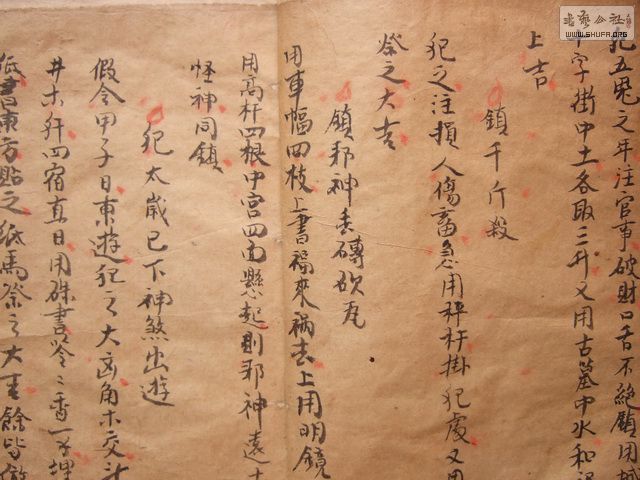 犯五鬼之年注官事破財口舌不絶願用
十字街中土各取三升又用古墓中水和
上吉
鎖千斤殺
犯之注損人傷畜急用秤杆掛犯處又用
祭之大吉
鎖邪神丢磚砍瓦
用車幅四枝上書福來禍去上用明鏡
用高杆四根中宫四面懸起則邪神遠
怪神同鎮
犯太歲已下神煞出遊
假令甲子日東遊犯之大凶角木交斗
井木犴四宿直日用硃書 香一 埋
纸書東方貼之纸馬祭之大吉餘皆倣
書藝公社
WWW.SHUFA.ORG